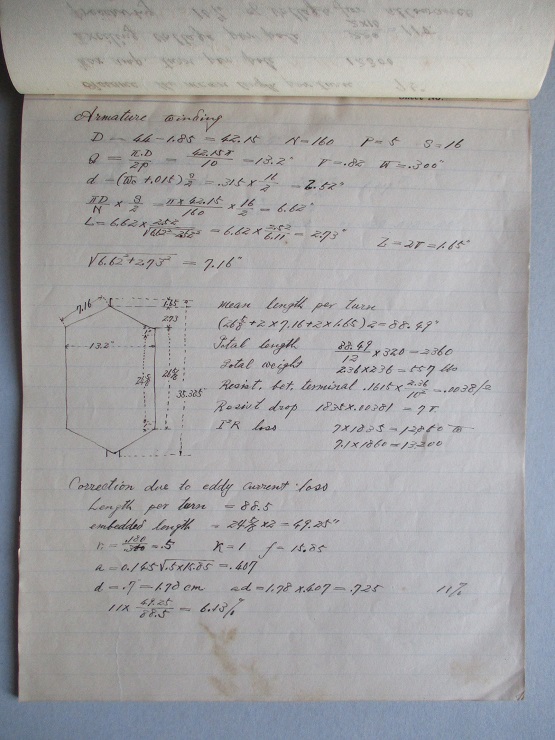 Armature winding
D = 44 - 1.85 = 42.15 N = 160 P = 5 S = 16
Q = π.D/2p = 42.15π/10 = 13.2" r = .82 W = .300"
d = (W₀ + .015) S/2 = .315 × 16/2 = 2.52"
πD/N × S/2 = π × 42.15/160 × 16/2 = 6.62"
L = 6.62 × 2.52/√6.62² - 2.52² = 6.62 × 2.52/6.11 = 2.73"
l = 2r = 1.65"
√6.62² + 2.73² = 7.16"
7.16"
1.65
2.73
13.2"
26⅝
26⅝
35.385"
mean length per turn
(26⅝ + 2 × 7.16 + 2 × 1.65) 2 = 88.49"
Total length 88.49/12 × 320 = 2360
Total weight 236 × 236 = 557 lbs
Resist. bet. terminal .1615 × 2.36/10² = .0038/2
Resist drop 1835 × .00381 = 7 v
I²R loss 7 × 1835 = 12850 w
7.1 × 1860 = 13200
Correction due to eddy current loss
Length per turn = 88.5
embedded length = 24⅝ × 2 = 49.25"
r = .180/.360 = .5 K = 1 f = 15.85
a = 0.145√.5 × 15.85 = .407
d = .7 = 1.78 cm ad = 1.78 × .407 = .725 11%
11 × 49.25/88.5 = 6.13%